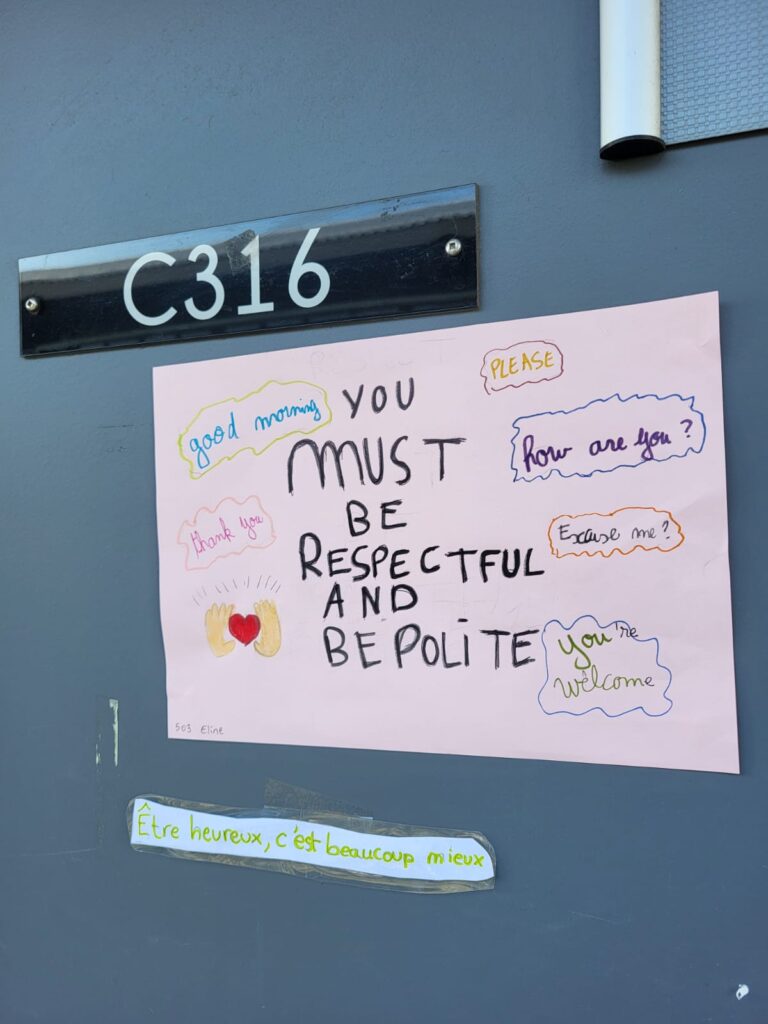 C316
PLEASE
good morning
YOU
MUST
BE
RESPECTFUL
AND
BE POLITE
how are you ?
thank you
Excuse me ?
you're
welcome
503 Eline
Être heureux, c'est beaucoup mieux